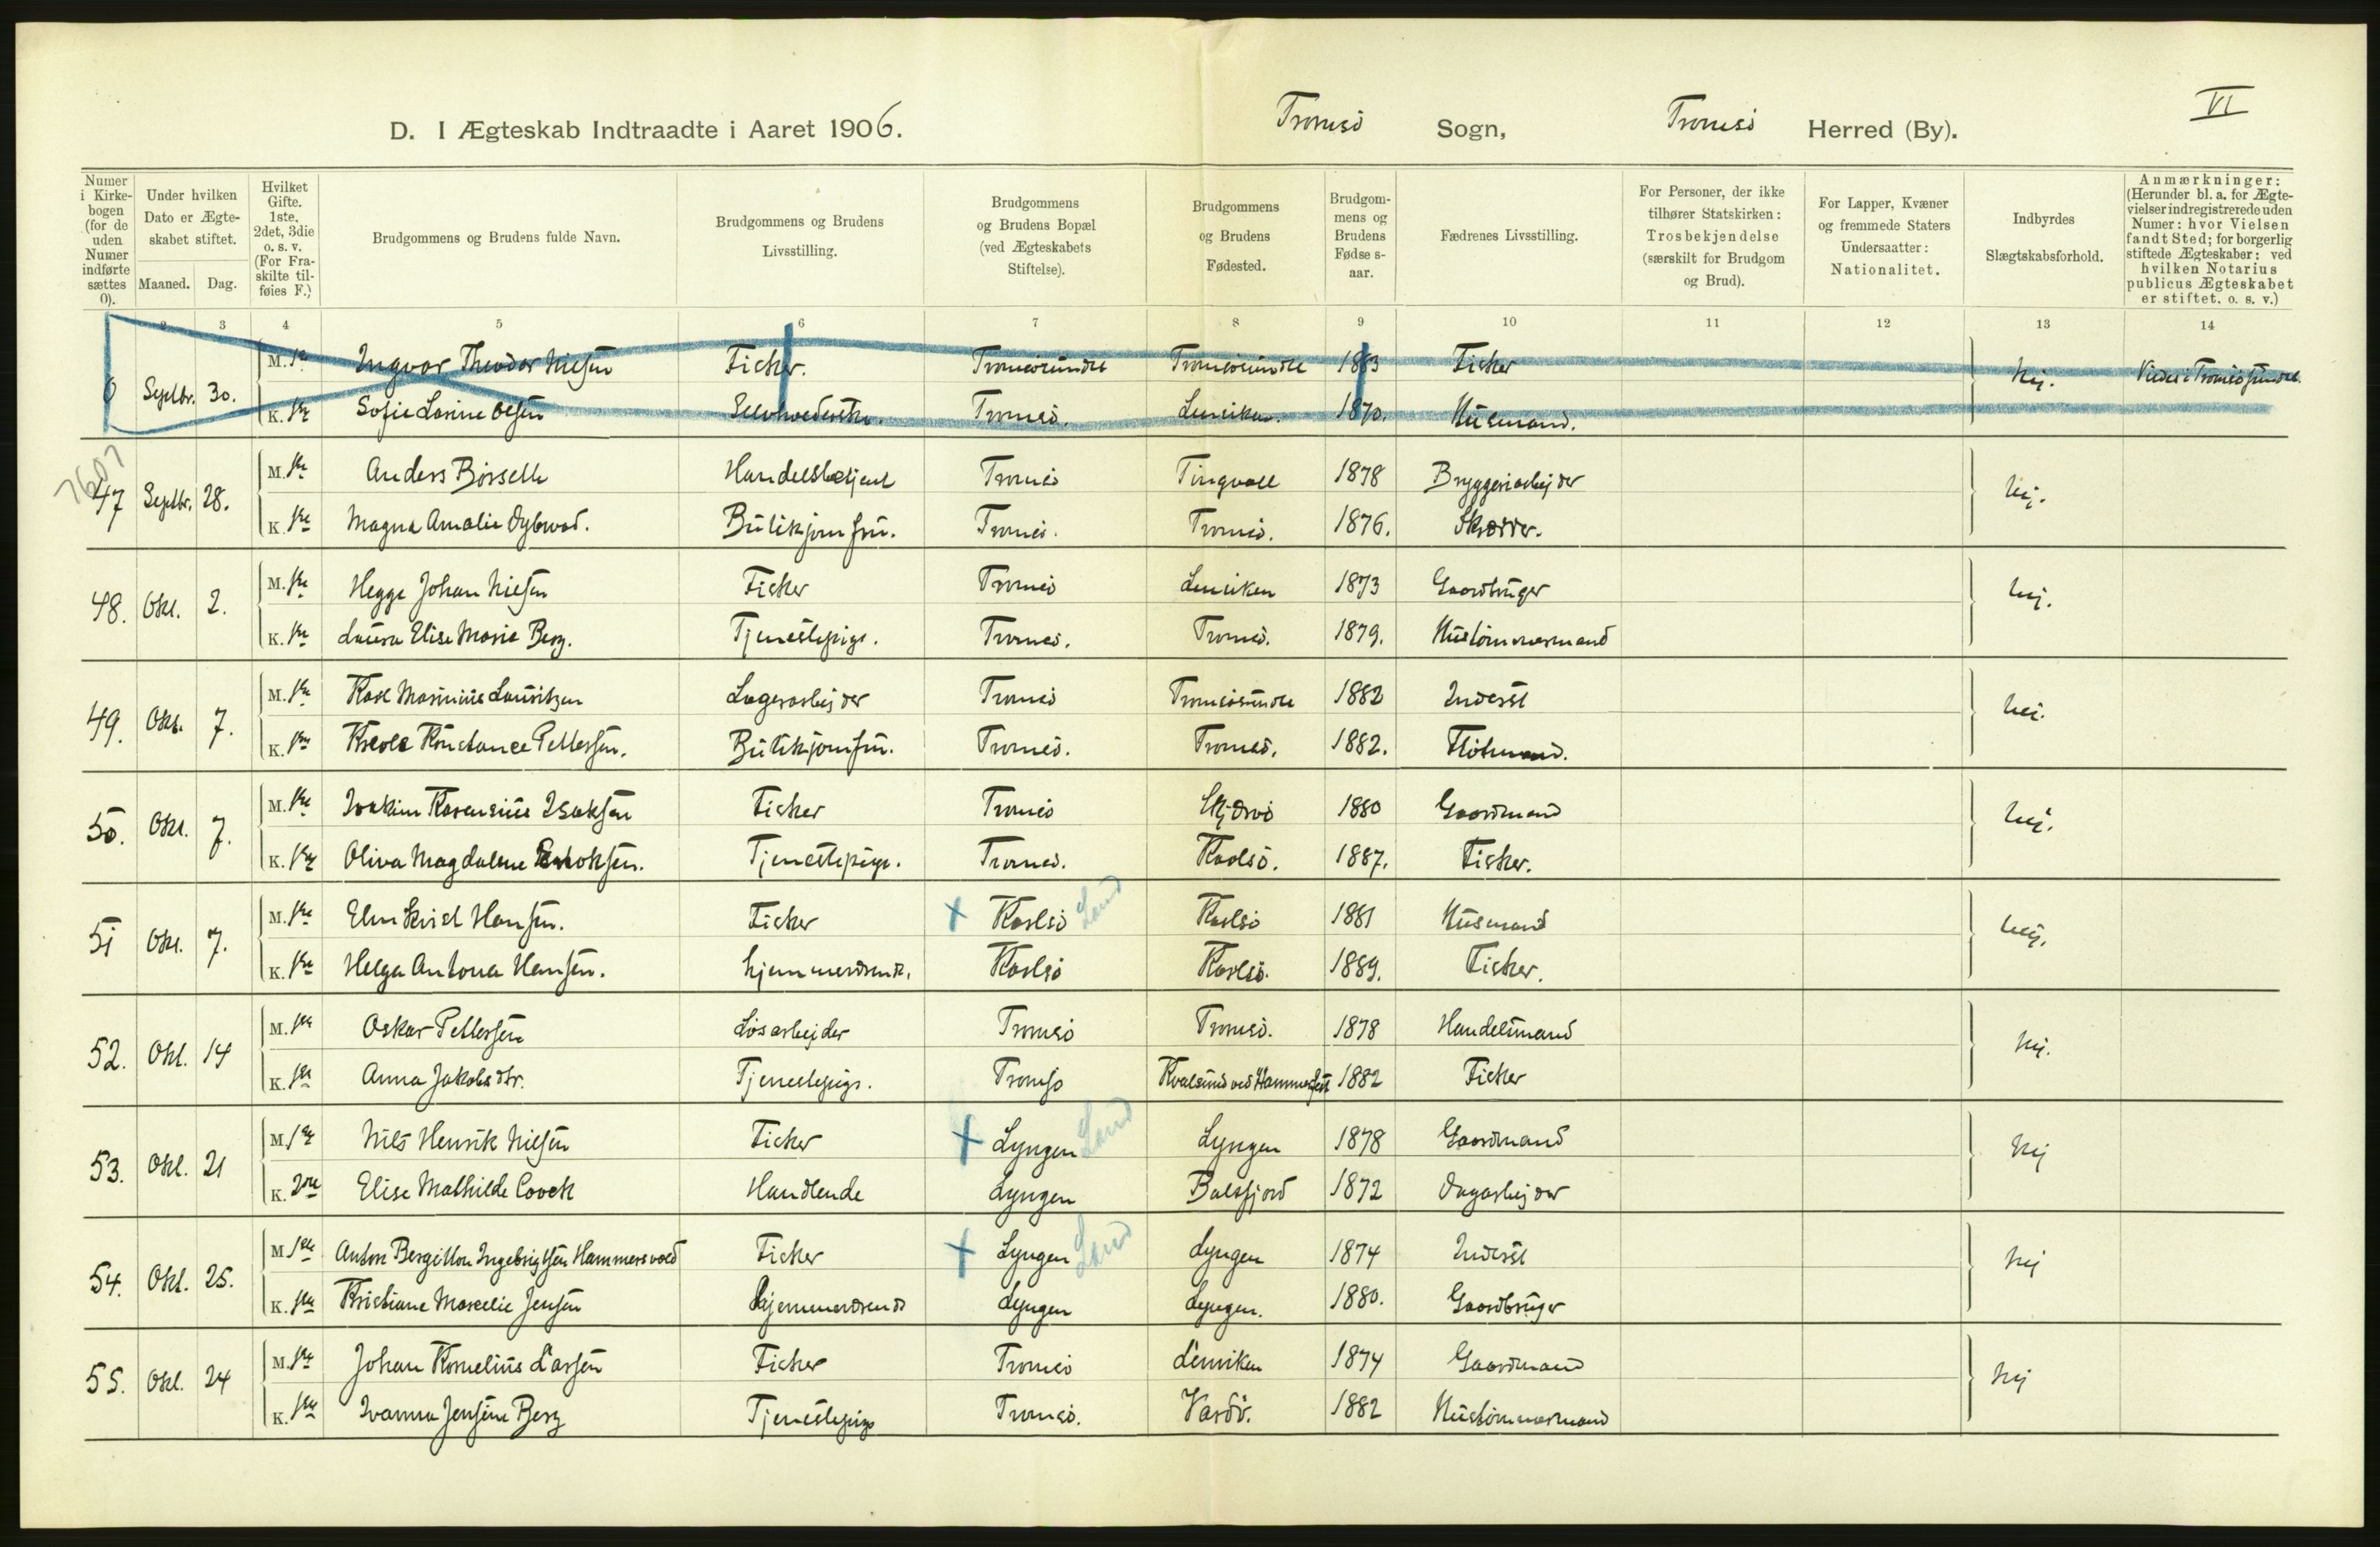 VI
D. I Ægteskab Indtraadte i Aaret 1906. Tromsö Sogn, Tromsö Herred (By).
Numer i Kirkebogen (for de uden Numer indførte sættes 0).
Under hvilken Dato er Ægteskabet stiftet.
Maaned. Dag.
Hvilket Gifte. 1ste, 2det, 3die o. s. v. (For Fraskilte tilføies F.)
Brudgommens og Brudens fulde Navn.
Brudgommens og Brudens Livsstilling.
Brudgommens og Brudens Bopæl (ved Ægteskabets Stiftelse).
Brudgommens og Brudens Fødested.
Brudgommens og Brudens Fødselsaar.
Fædrenes Livsstilling.
For Personer, der ikke tilhører Statskirken: Trosbekjendelse (særskilt for Brudgom og Brud).
For Lapper, Kvæner og fremmede Staters Undersaatter: Nationalitet.
Indbyrdes Slægtskabsforhold.
Anmærkninger: (Herunder bl. a. for Ægtevielser indregistrerede uden Numer: hvor Vielsen fandt Sted; for borgerlig stiftede Ægteskaber: ved hvilken Notarius publicus Ægteskabet er stiftet. o. s. v.)
2 3 4 5 6 7 8 9 10 11 12 13 14
0 Septbr. 30. M. 1ste Ingvar Theodor Nielsen Fisker. Tromsösundet Tromsösundet 1883 Fisker Nej. Viede i Tromsösundet
K. 1ste Sofie Lorine Olsen Tromsö. Lenviken. 1870. Husmand.
7607
47 Septbr. 28. M. 1ste Anders Börseth Handelsbetjent Tromsö Tingvoll 1878 Bryggeriarbejder Nej.
K. 1ste Magna Amalie Dybwad. Butikjomfru. Tromsö. Tromsö. 1876. Skræder.
48. Okt. 2. M. 1ste Hegge Johan Nielsen Fisker Tromsö Lenviken 1873 Gaardbruger Nej.
K. 1ste Laura Elise Marie Berg. Tjenestepige. Tromsö. Tromsö. 1879. Hustömmermand
49. Okt. 7. M. 1ste Karl Marinius Lauritzen Lagerarbejder Tromsö Tromsösundet 1882 Inderst Nej.
K. 1ste Konstance Pettersen. Butikjomfru. Tromsö. Tromsö. 1882. Flötmand.
50. Okt. 7. M. 1ste Joakim Isaksen Fisker Tromsö Skjervö 1880 Gaardmand Nej.
K. 1ste Oliva Magdalene Enoksen. Tjenestepige. Tromsö. Karlsö. 1887. Fisker.
51 Okt. 7. M. 1ste Elmkvist Hansen. Fisker + Karlsö Land Karlsö 1881 Husmand Nej.
K. 1ste Helga Antona Hansen. hjemmeværende. Karlsö Karlsö. 1889. Fisker.
52. Okt. 14 M. 1ste Oskar Pettersen Lösarbejder Tromsö Tromsö. 1878 Handelsmand Nej.
K. 1ste Anna Jakobsdtr. Tjenestepige. Tromsö Kvalsund ved Hammerfest 1882 Fisker
53. Okt. 21 M. 1ste Nils Henrik Nielsen Fisker + Lyngen Land Lyngen 1878 Gaardmand Nej
K. 2det Elise Mathilde Figenschou Handlende Lyngen Balsfjord 1872 Dagarbejder
54. Okt. 25. M. 1ste Anton Bergiton Ingebrigtsen Hammervold Fisker + Lyngen Land Lyngen 1874 Inderst Nej
K. 1ste Kristiane Marselie Jensen hjemmeværende Lyngen Lyngen. 1880. Gaardbruger
55. Okt. 24 M. 1ste Johan Kornelius Larsen Fisker Tromsö Lenviken 1874 Gaardmand Nej
K. 1ste Ivanna Jensine Berg Tjenestepige Tromsö. Vardö. 1882 Hustömmermand